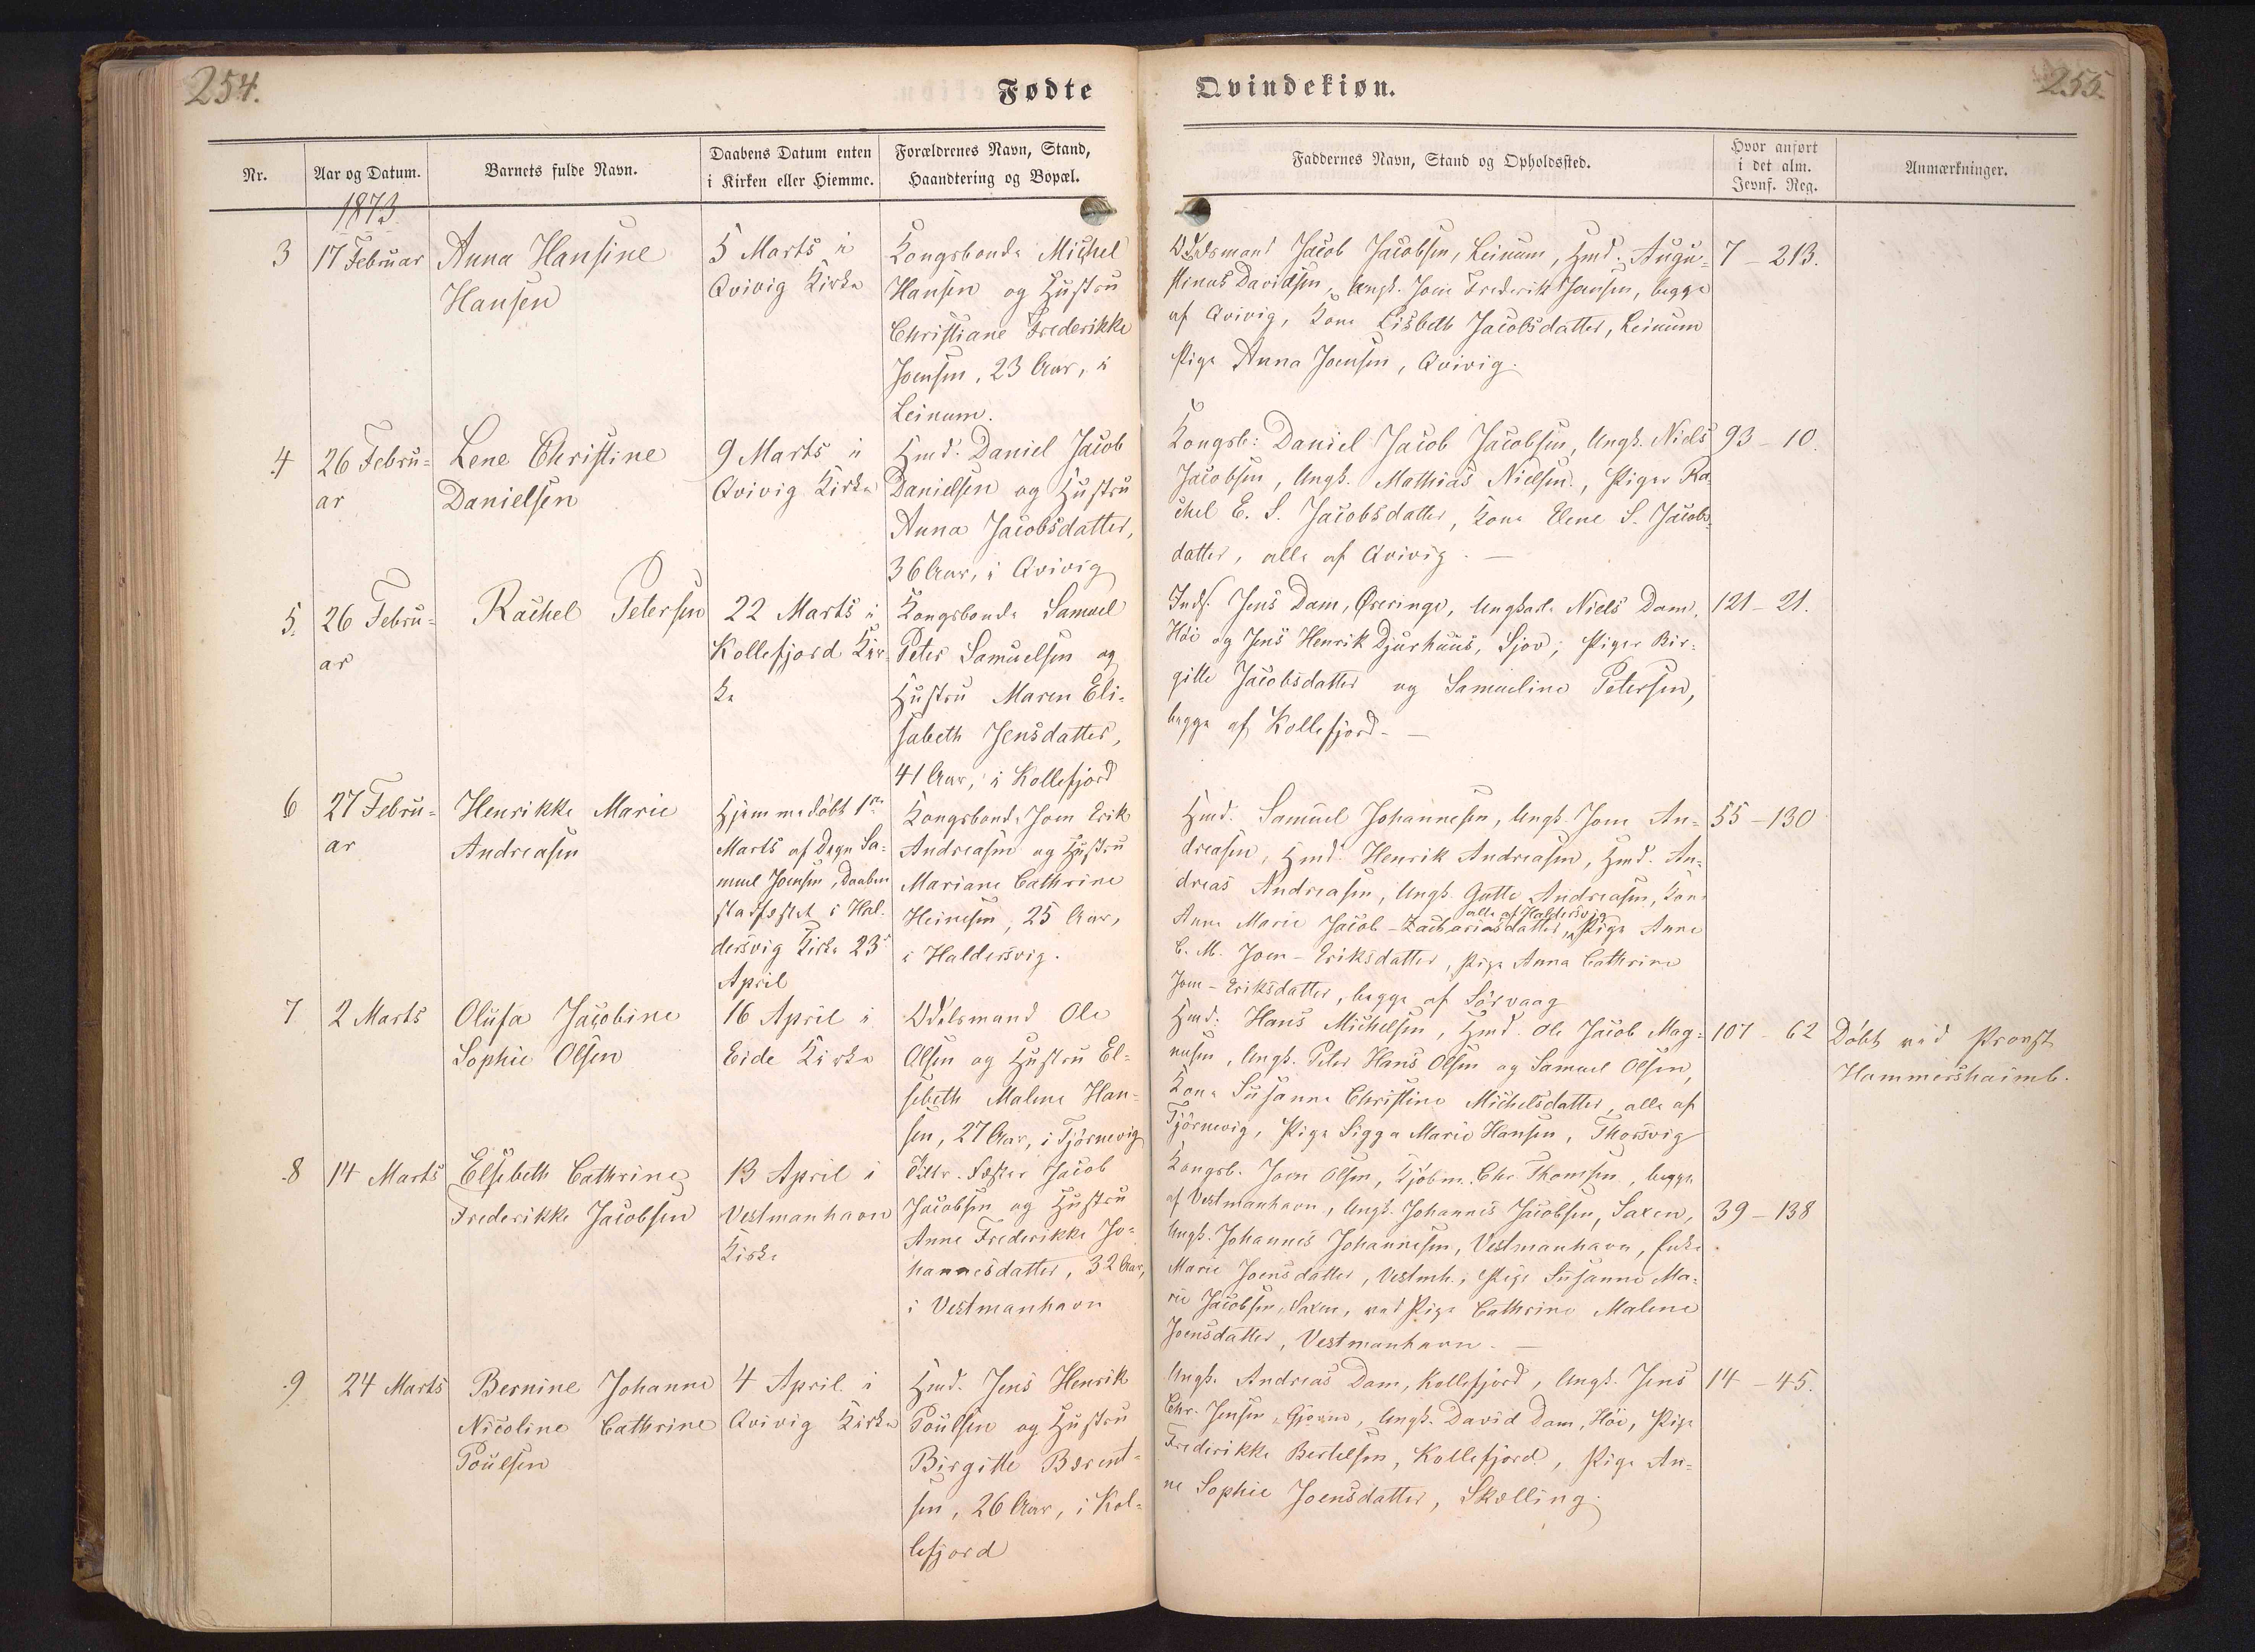 254.
Fødte
Qvindekiøn.
255.
Nr.
Aar og Datum.
Barnets fulde Navn.
Daabens Datum enten
i Kirken eller Hiemme.
Forældrenes Navn, Stand,
Haandtering og Bopæl.
Faddernes Navn, Stand og Opholdssted.
Hvor anført
i det alm.
Jevnf. Reg.
Anmærkninger.
1873.
3
17 Februar
Anna Hansine
Hansen
5 Marts i
Qvivig Kirke
Kongsbonde Michel
Hansen og Hustru
Christiane Frederikke
Joensen, 23 Aar, i
Leinum.
Odelsmand Jacob Jacobsen, Leinum, Hmd. Augu-
stinus Davidsen, Ungk. Joen Frederik Jansen, begge
af Qvivig, Kone Lisbeth Jacobsdatter, Leinum
Pige Anna Joensen, Qvivig.
7 - 213.
4
26 Febru-
ar
Lene Christine
Danielsen
9 Marts i
Qvivig Kirke
Hmd. Daniel Jacob
Danielsen og Hustru
Anna Jacobsdatter,
36 Aar, i Qvivig
Kongsb: Daniel Jacob Jacobsen, Ungk. Niels
Jacobsen, Ungk. Mathias Nielsen., Piger Ra-
chel E. S. Jacobsdatter, Kone Elene S. Jacobs-
datter, alle af Qvivig. —
93 - 10.
5.
26 Febru-
ar
Rachel Petersen
22 Marts i
Kollefjord Kir-
ke
Kongsbonde Samuel
Peter Samuelsen og
Hustru Maren Eli-
sabeth Jensdatter,
41 Aar, i Kollefjord
Inds. Jens Dam, Øreringe, Ungkarle Niels Dam,
Høi og Jens Henrik Djurhuus, Sjov; Piger Bir-
gitte Jacobsdatter og Samueline Petersen,
begge af Kollefjord. —
121 - 21.
6
27 Febru-
ar
Henrikke Marie
Andreasen
Hjemmedøbt 1ste
Marts af Degn Sa-
muel Joensen, Daaben
stadfæstet i Hal-
dersvig Kirke 23d
April
Kongsbonde Joen Erik
Andreasen og Hustru
Mariane Cathrine
Heinesen, 25 Aar,
i Haldersvig.
Hmd. Samuel Johannesen, Ungk. Joen An-
dreasen, Hmd. Henrik Andreasen, Hmd. An-
dreas Andreasen, Ungk. Gutte Andreasen, Kone
alle af Haldersvig
Anne Marie Jacob-Zachariasdatter, Pige Anne
C. M. Joen-Eriksdatter, Pige Anna Cathrine
Joen-Eriksdatter, begge af Sörvaag
55 - 130
7
2 Marts
Olufa Jacobine
Sophie Olsen
16 April i
Eide Kirke
Odelsmand Ole
Olsen og Hustru El-
sebeth Malene Han-
sen, 27 Aar, i Tjörnevig
Hmd. Hans Michelsen, Hmd. Ole Jacob Mag-
nusen, Ungk. Peter Hans Olsen og Samuel Olsen,
Kone Susanne Christine Michelsdatter, alle af
Tjörnevig, Pige Sigga Marie Hansen, Thorsvig
107 - 62
Döbt ved Provst
Hammershaimb.
8
14 Marts
Elsebeth Cathrine
Frederikke Jacobsen
13 April i
Vestmanhavn
Kirke
Fæster Jacob
Jacobsen og Hustru
Anne Frederikke Jo-
hannesdatter, 32 Aar,
i Vestmanhavn
Kongsb. Joen Olsen, Kjöbm. Chr. Thomsen, begge
af Vestmanhavn, Ungk. Johannes Jacobsen, Saxen,
Ungk. Johannes Johannesen, Vestmanhavn, Enke
Marie Joensdatter, Vestmh., Pige Susanne Ma-
rie Jacobsen, Saxen, ved Pige Cathrine Malene
Joensdatter, Vestmanhavn. —
39 - 138
9.
24 Marts
Bernine Johanne
Nicoline Cathrine
Poulsen
4 April i
Qvivig Kirke
Hmd. Jens Henrik
Poulsen og Hustru
Birgitte Berent-
sen, 26 Aar, i Kol-
lefjord
Ungk. Andreas Dam, Kollefjord, Ungk. Jens
Chr. Jensen, Ungk. David Dam, Höi, Pige
Frederikke Bertelsen, Kollefjord, Pige An-
ne Sophie Joensdatter, Skælling.
14 - 45.